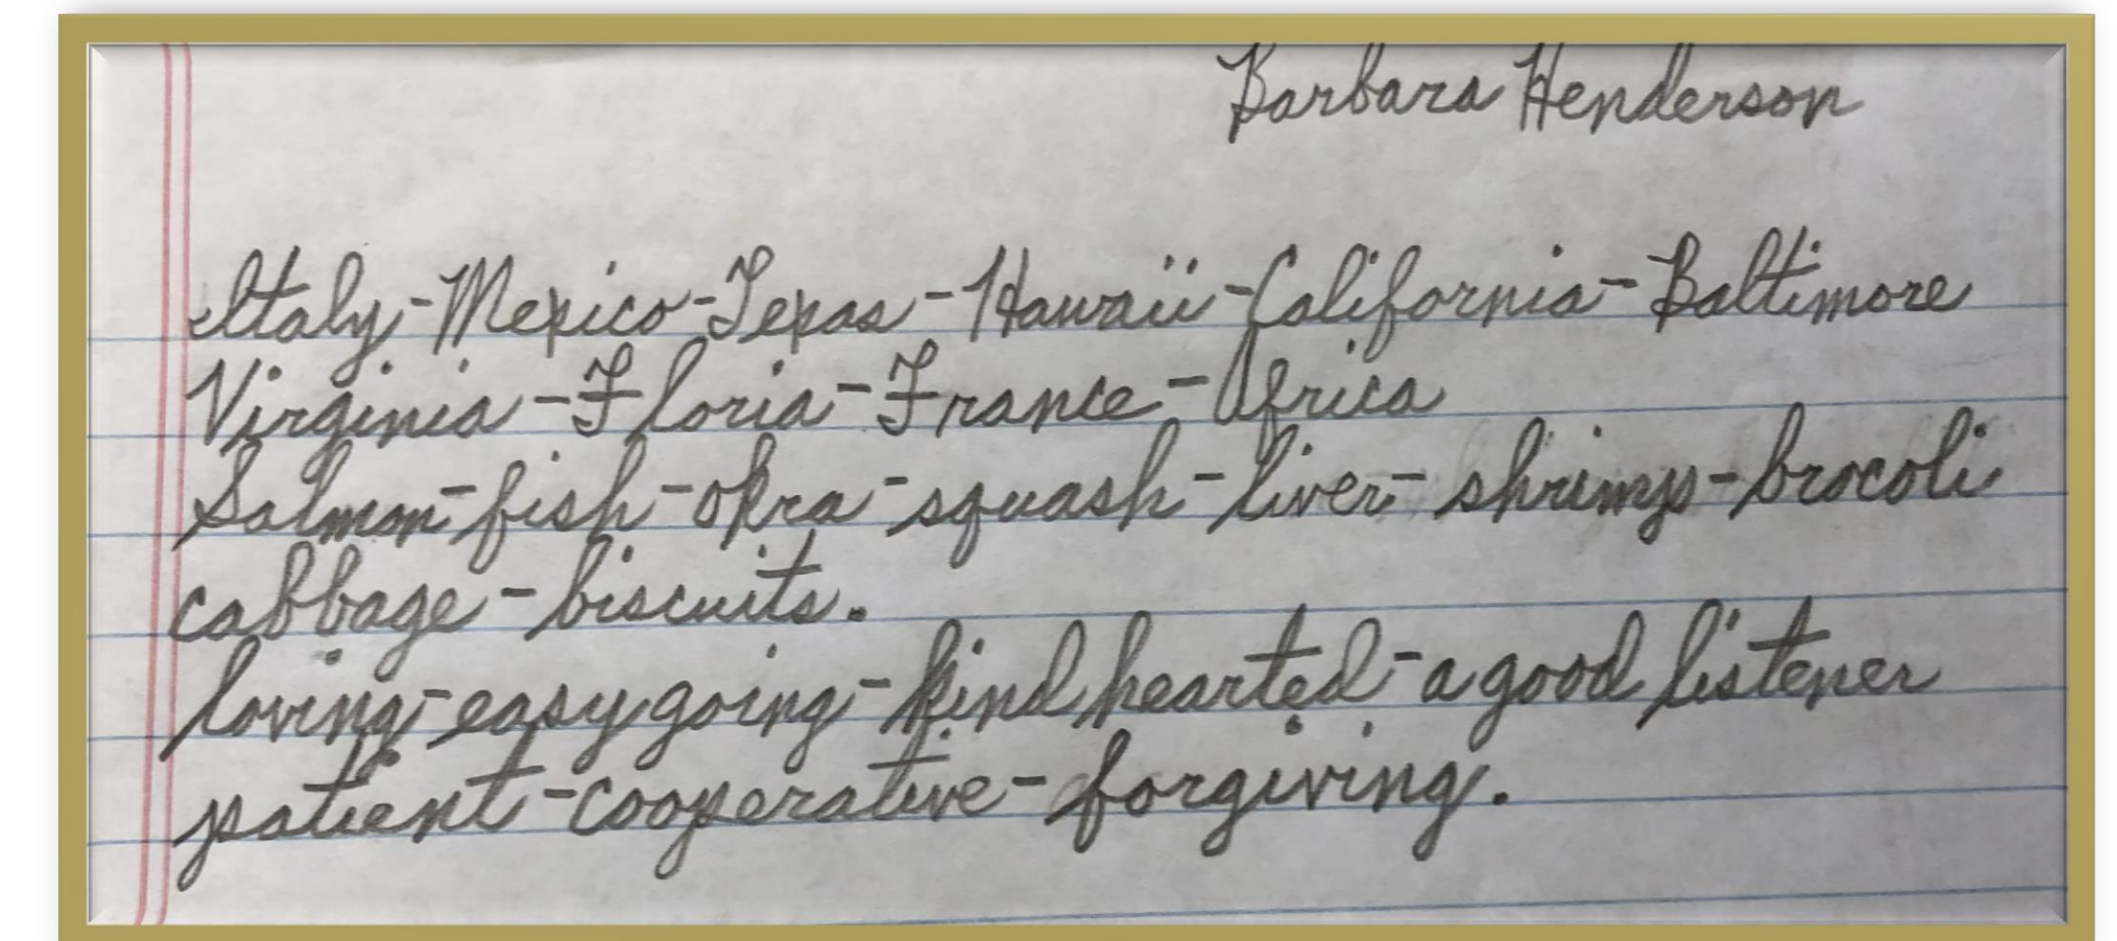 Barbara Henderson
Italy-Mexico-Texas-Hawaii-California-Baltimore
Virginia-Floria-France-Africa
Salmon-fish-okra-squash-liver-shrimp-brocoli
cabbage-biscuits.
loving-easygoing-kind hearted-a good listener
patient-cooperative-forgiving.